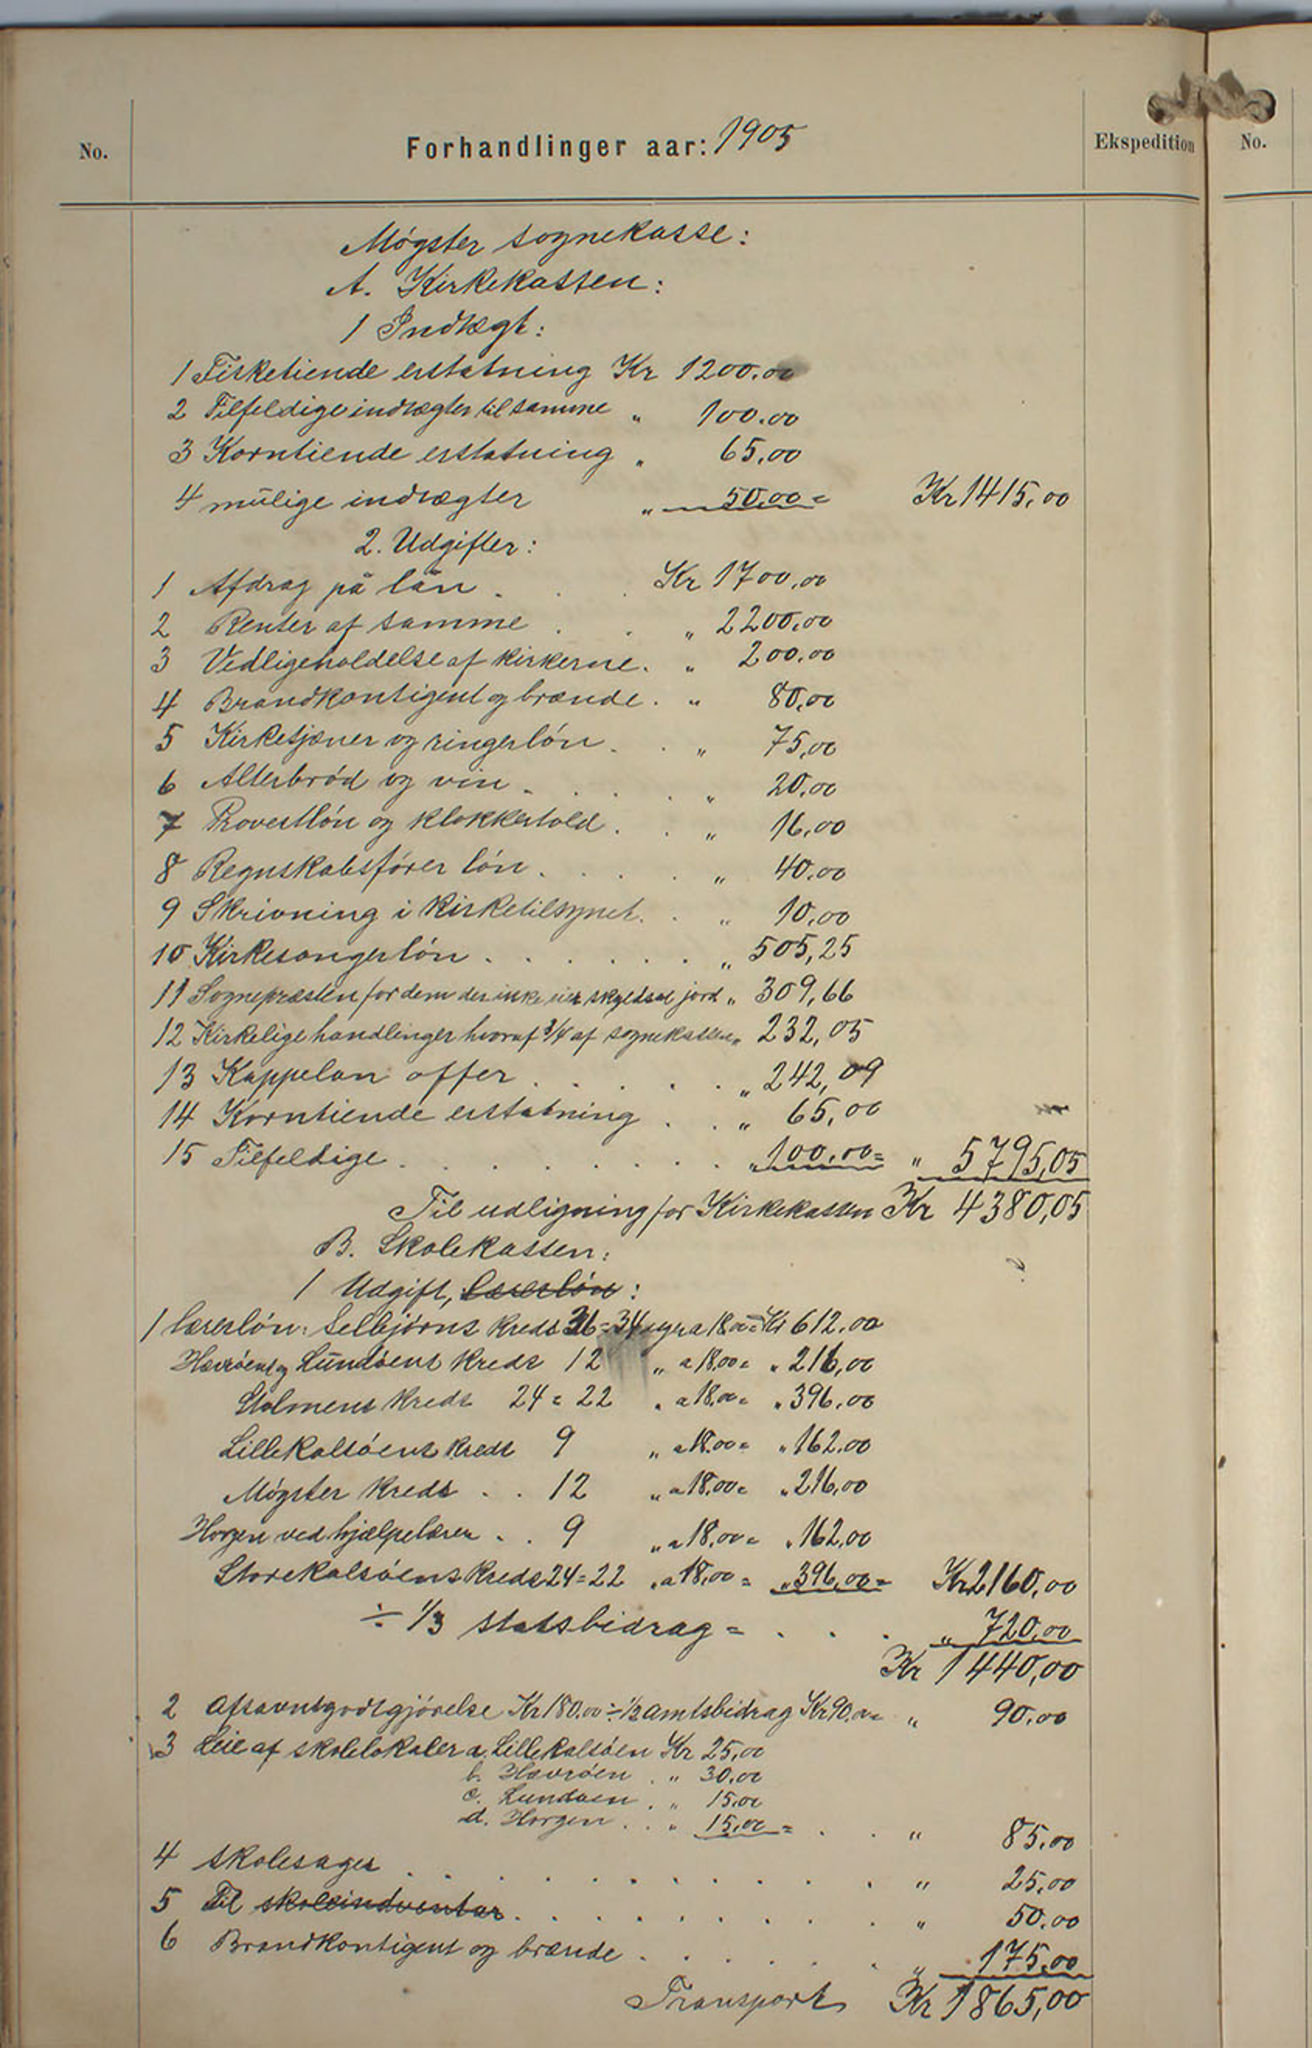 No. Forhandlinger aar: 1905 Ekspedition No.
Møgster sognekasse:
A. Kirkekassen:
1 Indtægt:
1 Fisketiende erstatning Kr 1200.00
2 Tilfeldige indtægter til samme " 100.00
3 Korntiende erstatning " 65,00
4 mulige indtægter " 50,00 = Kr 1415,00
2. Udgifter:
1 Afdrag på lån . . . Kr 1700,00
2 Renter af samme . . " 2200,00
3 Vedligeholdelse af kirkerne . " 200.00
4 Brandkontigent og brænde . " 80,00
5 Kirketjæner og ringerløn . . " 75,00
6 Alterbrød og vin . . . . " 20,00
7 Provestløn og klokkertold . . " 16,00
8 Regnskabsfører løn . . . . " 40,00
9 Skrivning i kirketilsynet . . " 10,00
10 Kirkesangerløn . . . . . . " 505,25
11 Sognepræsten for dem der inke eier skyldsat jord " 309,66
12 Kirkelige handlinger hvoraf 3/4 af sognekassen " 232,05
13 Kappelan offer . . . . . " 242,09
14 Korntiende erstatning . . " 65,00
15 Tilfeldige . . . . . . . . " 100,00 = " 5795,05
Til udligning for Kirkekassen Kr 4380,05
B. Skolekassen:
1 Udgift, Lærerløn :
1 lærerløn: Selbjørns kreds 36 = 34 uger a 18.00 = Kr 612.00
Havrøens og Lundøens kreds 12 " a 18,00 = " 216,00
Stolmens kreds 24 = 22 " a 18,00 = " 396.00
Lillekalsøens kreds 9 " a 18.00 = " 162.00
Møgster kreds . . 12 " a 18,00 = " 216,00
Horgen ved hjælpelærer . . 9 " a 18,00 = " 162,00
Storekalsøens kreds 24 = 22 " a 18,00 = " 396,00 = Kr 2160,00
÷ 1/3 statsbidrag = . . . " 720,00
Kr 1440,00
2 Afsavnsgodtgjørelse Kr 180.00 ÷ 1/2 amtsbidrag Kr 90,00 = " 90.00
3 Leie af skolelokaler a. Lillekalsøen Kr 25,00
b. Havrøen . " 30,00
c. Lundøen . " 15.00
d. Horgen . . " 15,00 = . . " 85.00
4 skolesager . . . . . . . . . . . " 25,00
5 Til skoleindventar . . . . . . . . . " 50.00
6 Brandkontigent og brænde . . . . . " 175,00
Transport Kr 1865,00